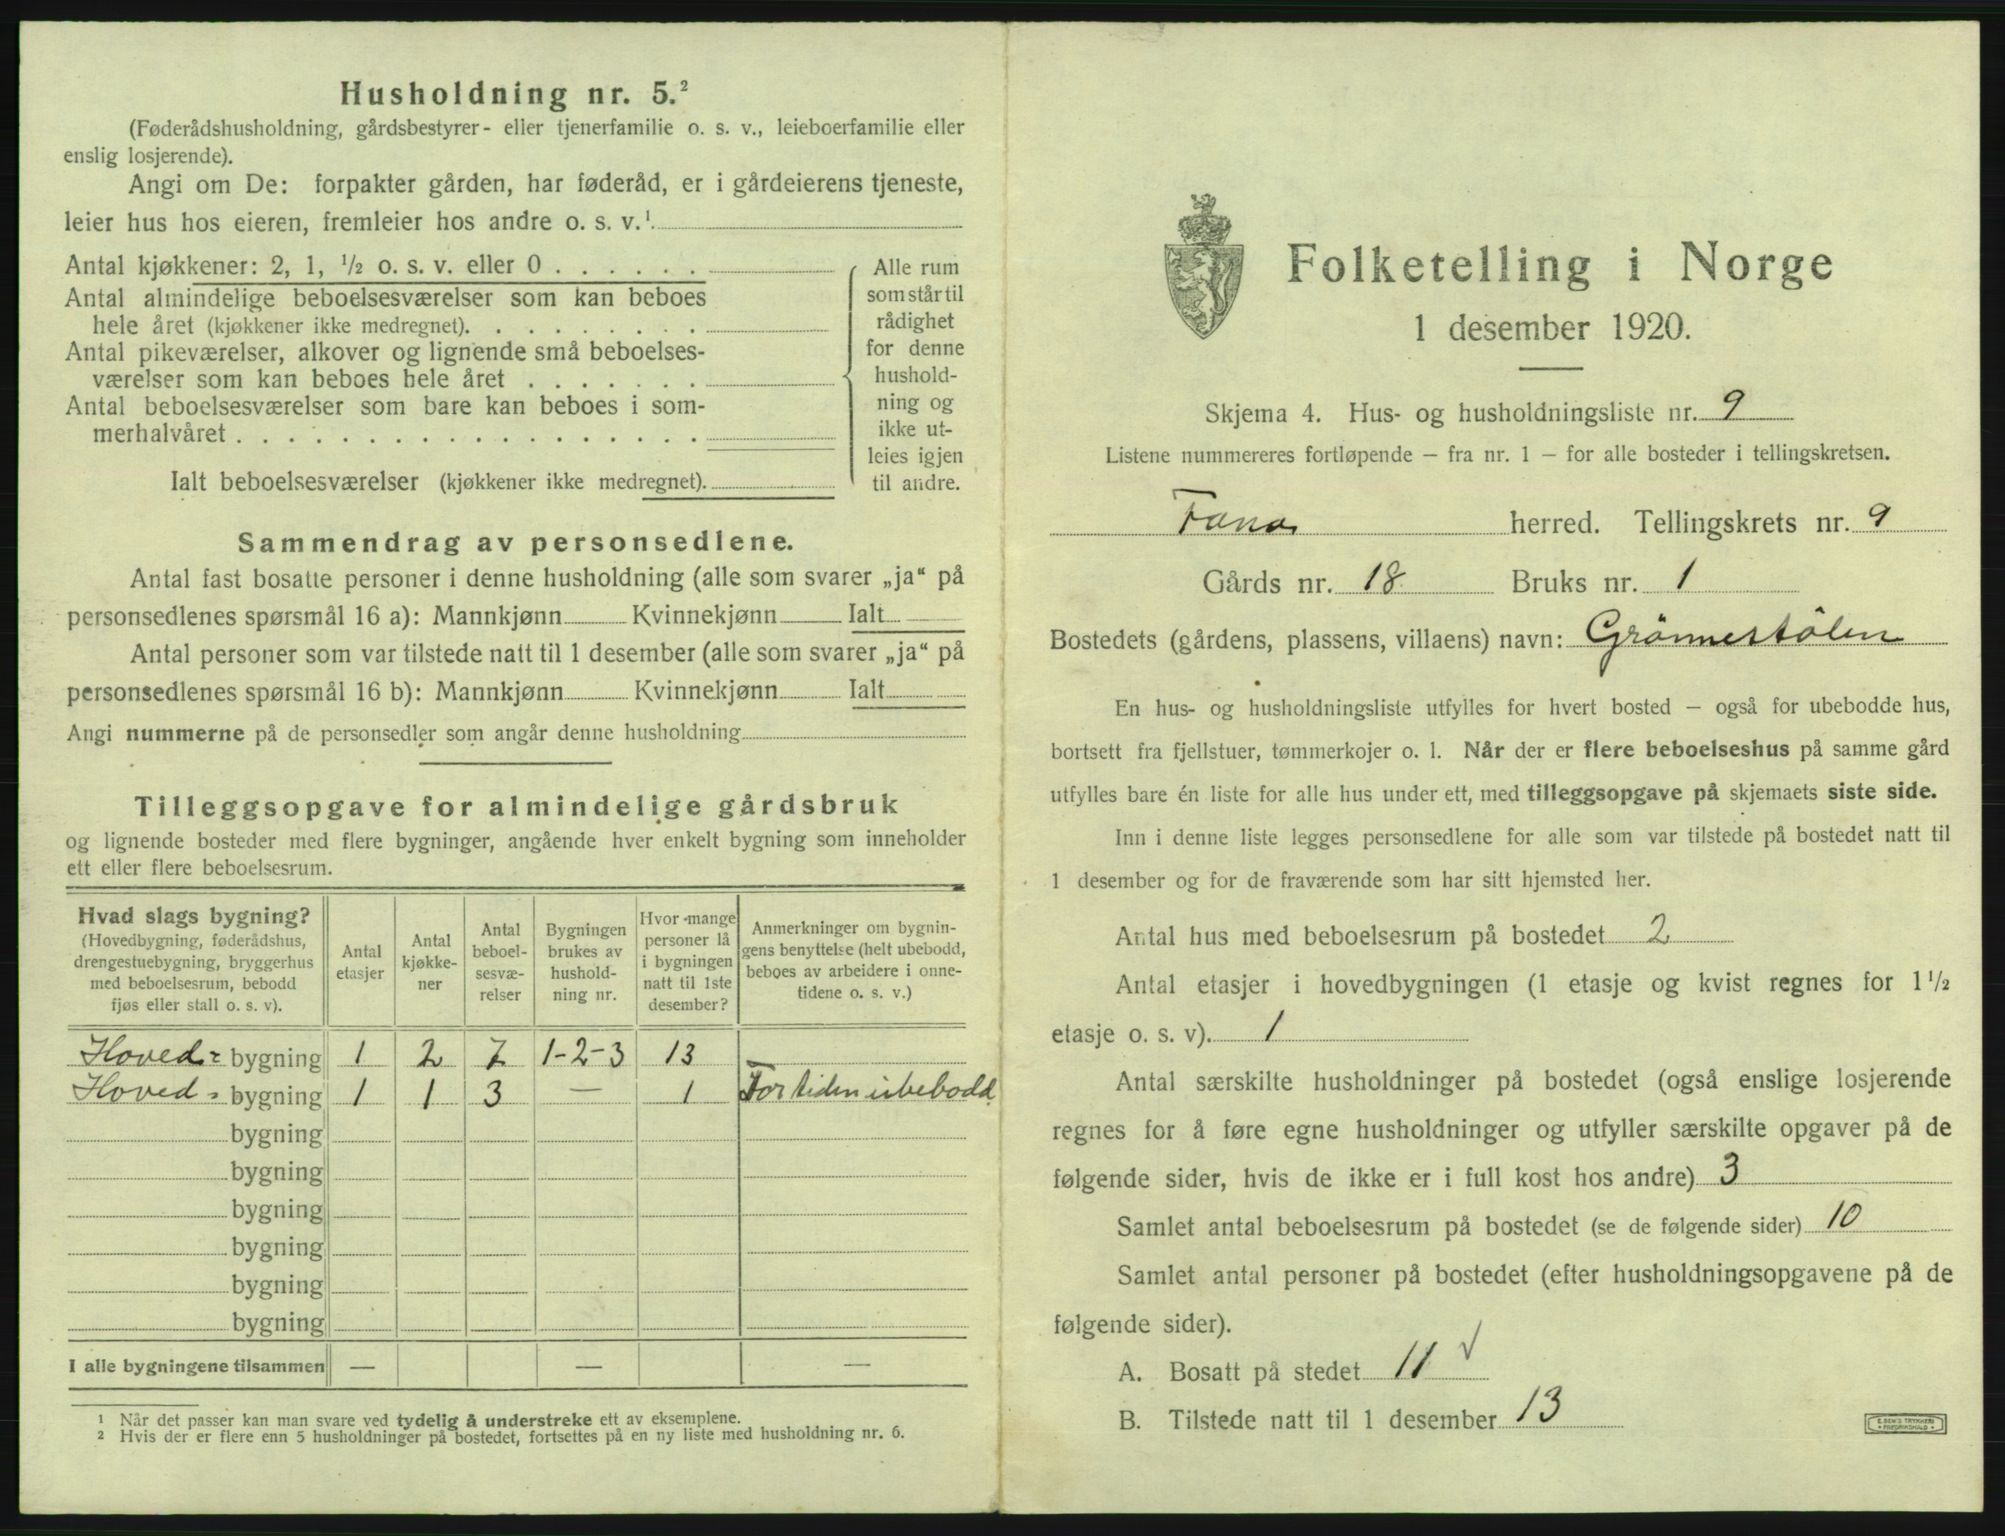 Husholdning nr. 5.²
(Føderådshusholdning, gårdsbestyrer- eller tjenerfamilie o. s. v., leieboerfamilie eller
enslig losjerende).
Angi om De: forpakter gården, har føderåd, er i gårdeierens tjeneste,
leier hus hos eieren, fremleier hos andre o. s. v.¹
Antal kjøkkener: 2, 1, ½ o. s. v. eller 0 . . . . . .
Antal almindelige beboelsesværelser som kan beboes
hele året (kjøkkener ikke medregnet). . . . . . . . .
Antal pikeværelser, alkover og lignende små beboelses-
værelser som kan beboes hele året . . . . . . .
Antal beboelsesværelser som bare kan beboes i som-
merhalvåret . . . . . . . . . . . . . . . . . .
Ialt beboelsesværelser (kjøkkener ikke medregnet).
Alle rum
som står til
rådighet
for denne
hushold-
ning og
ikke ut-
leies igjen
til andre.
Sammendrag av personsedlene.
Antal fast bosatte personer i denne husholdning (alle som svarer „ja“ på
personsedlenes spørsmål 16 a): Mannkjønn Kvinnekjønn Ialt
Antal personer som var tilstede natt til 1 desember (alle som svarer „ja“ på
personsedlenes spørsmål 16 b): Mannkjønn Kvinnekjønn Ialt
Angi nummerne på de personsedler som angår denne husholdning
Tilleggsopgave for almindelige gårdsbruk
og lignende bosteder med flere bygninger, angående hver enkelt bygning som inneholder
ett eller flere beboelsesrum.
Hvad slags bygning?
(Hovedbygning, føderådshus,
drengestuebygning, bryggerhus
med beboelsesrum, bebodd
fjøs eller stall o. s. v).
Antal
etasjer
Antal
kjøkke-
ner
Antal
beboel-
sesvæ-
relser
Bygningen
brukes av
hushold-
ning nr.
Hvor mange
personer lå
i bygningen
natt til 1ste
desember?
Anmerkninger om bygnin-
gens benyttelse (helt ubebodd,
beboes av arbeidere i onne-
tidene o. s. v.)
Hoved= bygning 1 2 7 1-2-3 13
Hoved= bygning 1 1 3 — 1 For tiden ubebodd
bygning
bygning
bygning
bygning
bygning
bygning
I alle bygningene tilsammen — — —
¹ Når det passer kan man svare ved tydelig å understreke ett av eksemplene.
² Hvis der er flere enn 5 husholdninger på bostedet, fortsettes på en ny liste med husholdning nr. 6.
Folketelling i Norge
1 desember 1920.
Skjema 4. Hus- og husholdningsliste nr. 9
Listene nummereres fortløpende – fra nr. 1 – for alle bosteder i tellingskretsen.
Fana herred. Tellingskrets nr. 9
Gårds nr. 18 Bruks nr. 1
Bostedets (gårdens, plassens, villaens) navn: Grönnestölen
En hus- og husholdningsliste utfylles for hvert bosted – også for ubebodde hus,
bortsett fra fjellstuer, tømmerkojer o. l. Når der er flere beboelseshus på samme gård
utfylles bare én liste for alle hus under ett, med tilleggsopgave på skjemaets siste side.
Inn i denne liste legges personsedlene for alle som var tilstede på bostedet natt til
1 desember og for de fraværende som har sitt hjemsted her.
Antal hus med beboelsesrum på bostedet 2
Antal etasjer i hovedbygningen (1 etasje og kvist regnes for 1½
etasje o. s. v). 1
Antal særskilte husholdninger på bostedet (også enslige losjerende
regnes for å føre egne husholdninger og utfyller særskilte opgaver på de
følgende sider, hvis de ikke er i full kost hos andre) 3
Samlet antal beboelsesrum på bostedet (se de følgende sider) 10
Samlet antal personer på bostedet (efter husholdningsopgavene på de
følgende sider).
A. Bosatt på stedet 11 √
B. Tilstede natt til 1 desember 13